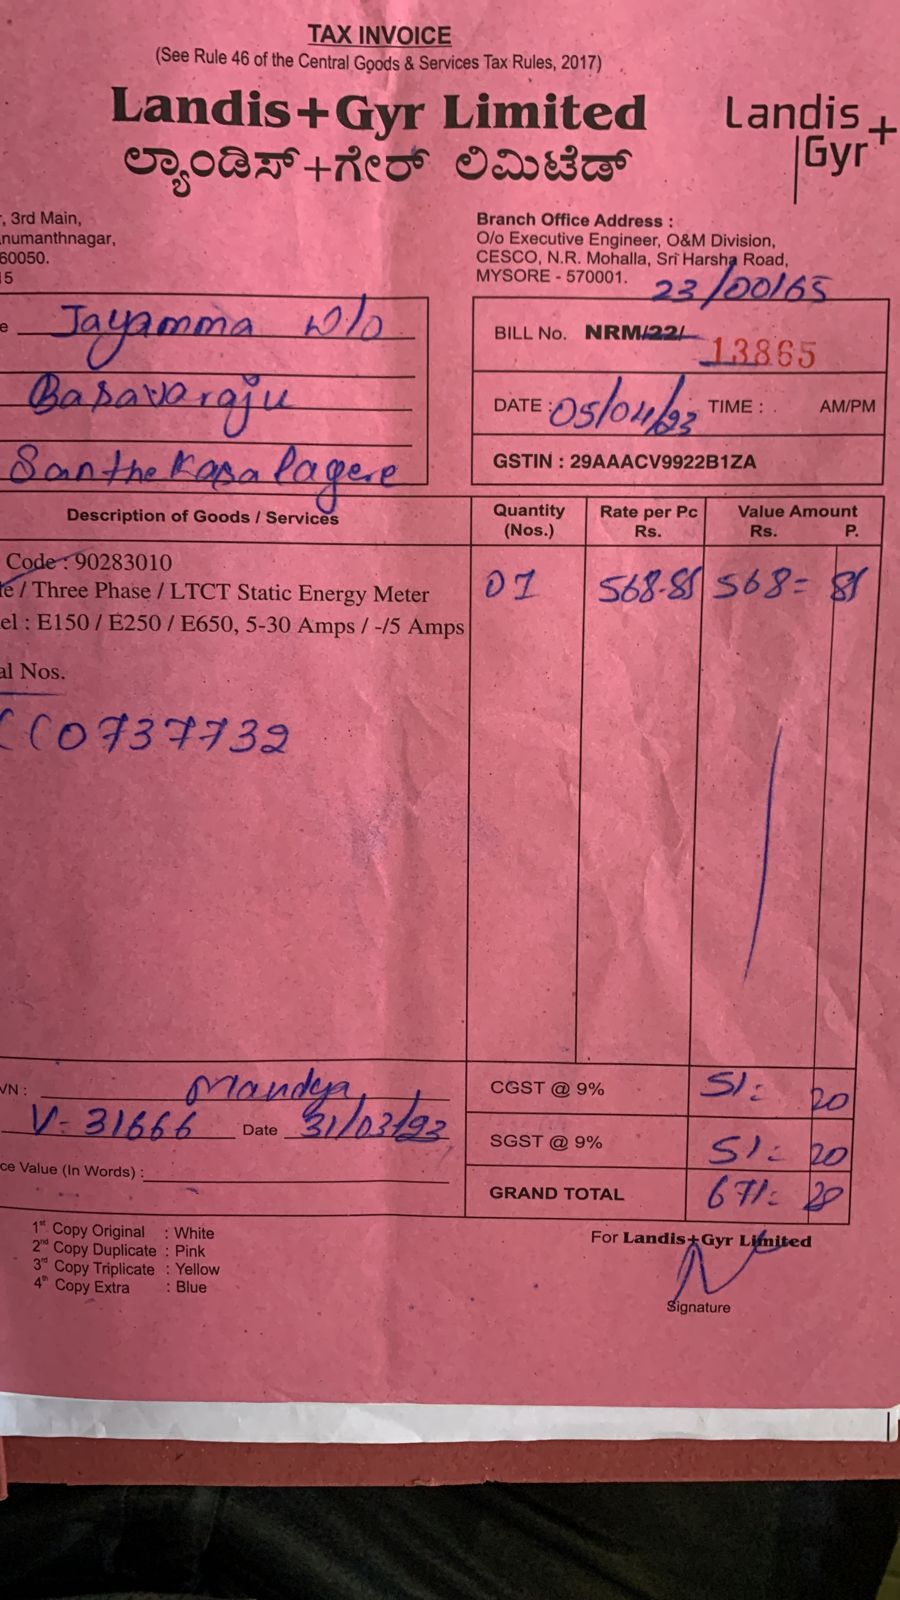 TAX INVOICE
(See Rule 46 of the Central Goods & Services Tax Rules, 2017)
Landis+Gyr Limited
ಲ್ಯಾಂಡಿಸ್+ಗೇರ್ ಲಿಮಿಟೆಡ್
Landis
Gyr+
, 3rd Main,
numanthnagar,
60050.
5
Branch Office Address :
O/o Executive Engineer, O&M Division,
CESCO, N.R. Mohalla, Sri Harsha Road,
MYSORE - 570001.
23/00165
e Jayamma w/o
Basavaraju
Santhekasalagere
BILL No. NRM/22/ 13865
DATE : 05/04/23 TIME : AM/PM
GSTIN : 29AAACV9922B1ZA
Description of Goods / Services Quantity (Nos.) Rate per Pc Rs. Value Amount Rs. P.
Code : 90283010
le / Three Phase / LTCT Static Energy Meter 01 568.81 568= 81
el : E150 / E250 / E650, 5-30 Amps / -/5 Amps
al Nos.
0737732
VN : Mandya
V- 31666 Date 31/03/23
ce Value (In Words) :
CGST @ 9% 51= 20
SGST @ 9% 51= 20
GRAND TOTAL 671= 20
1st Copy Original : White
2nd Copy Duplicate : Pink
3rd Copy Triplicate : Yellow
4th Copy Extra : Blue
For Landis+Gyr Limited
Signature